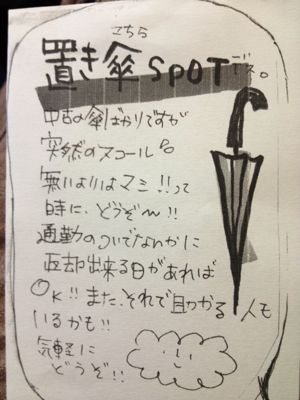 こちら
置き傘SPOTデス。
中古の傘ばかりですが
突然のスコール
無いよりはマシ!!って
時に、どうぞ〜!!
通勤のついでなんかに
返却出来る日があれば
OK!! また、それで助かる人も
いるかも!!
気軽に
どうぞ!!